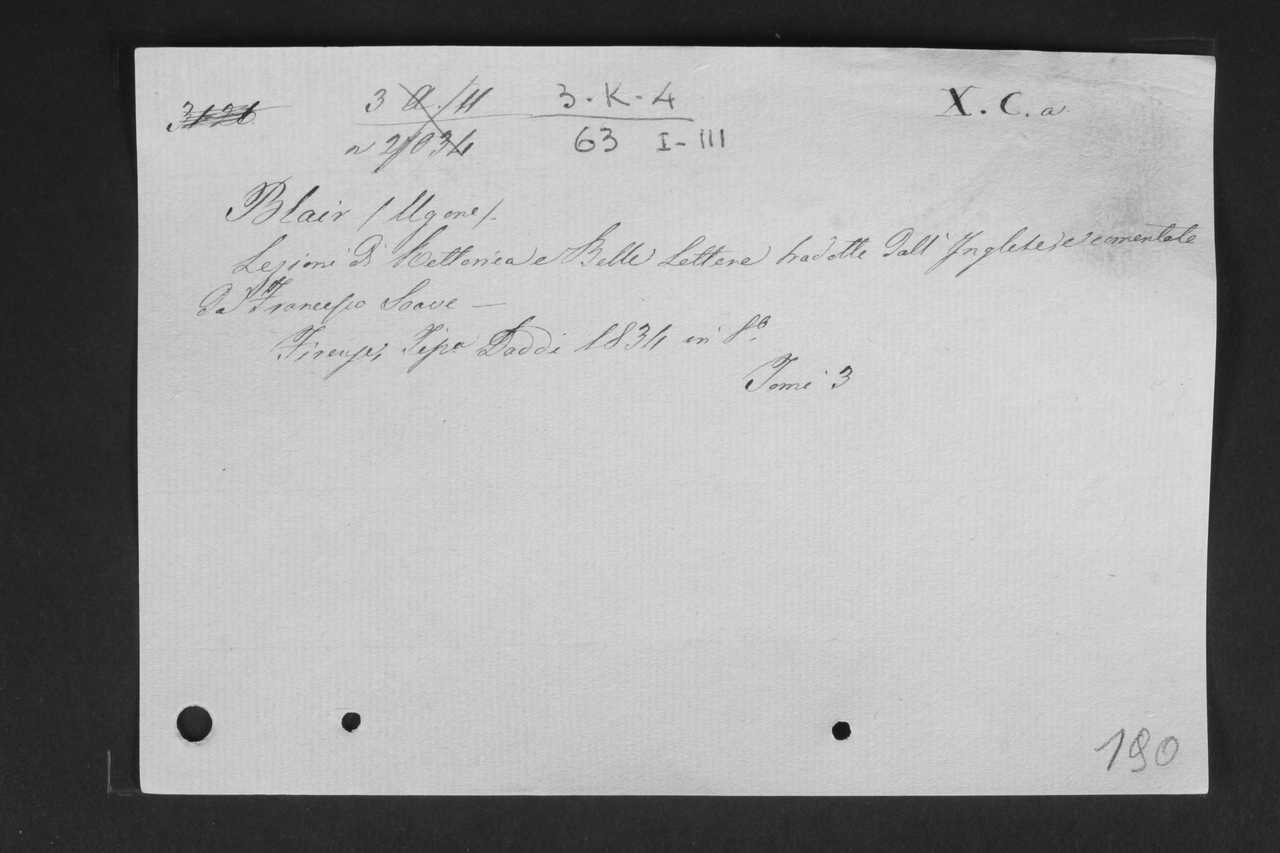 3121 3 a / 11 3-K-4 X. C. a
n 2034 63 I-III
Blair / Ugone /.
Lezioni di Rettorica e Belle Lettere tradotte dall' Inglese e comentate
da Francesco Soave —
Firenze, Tipa Daddi 1834 in 8.o
Tomi 3
190